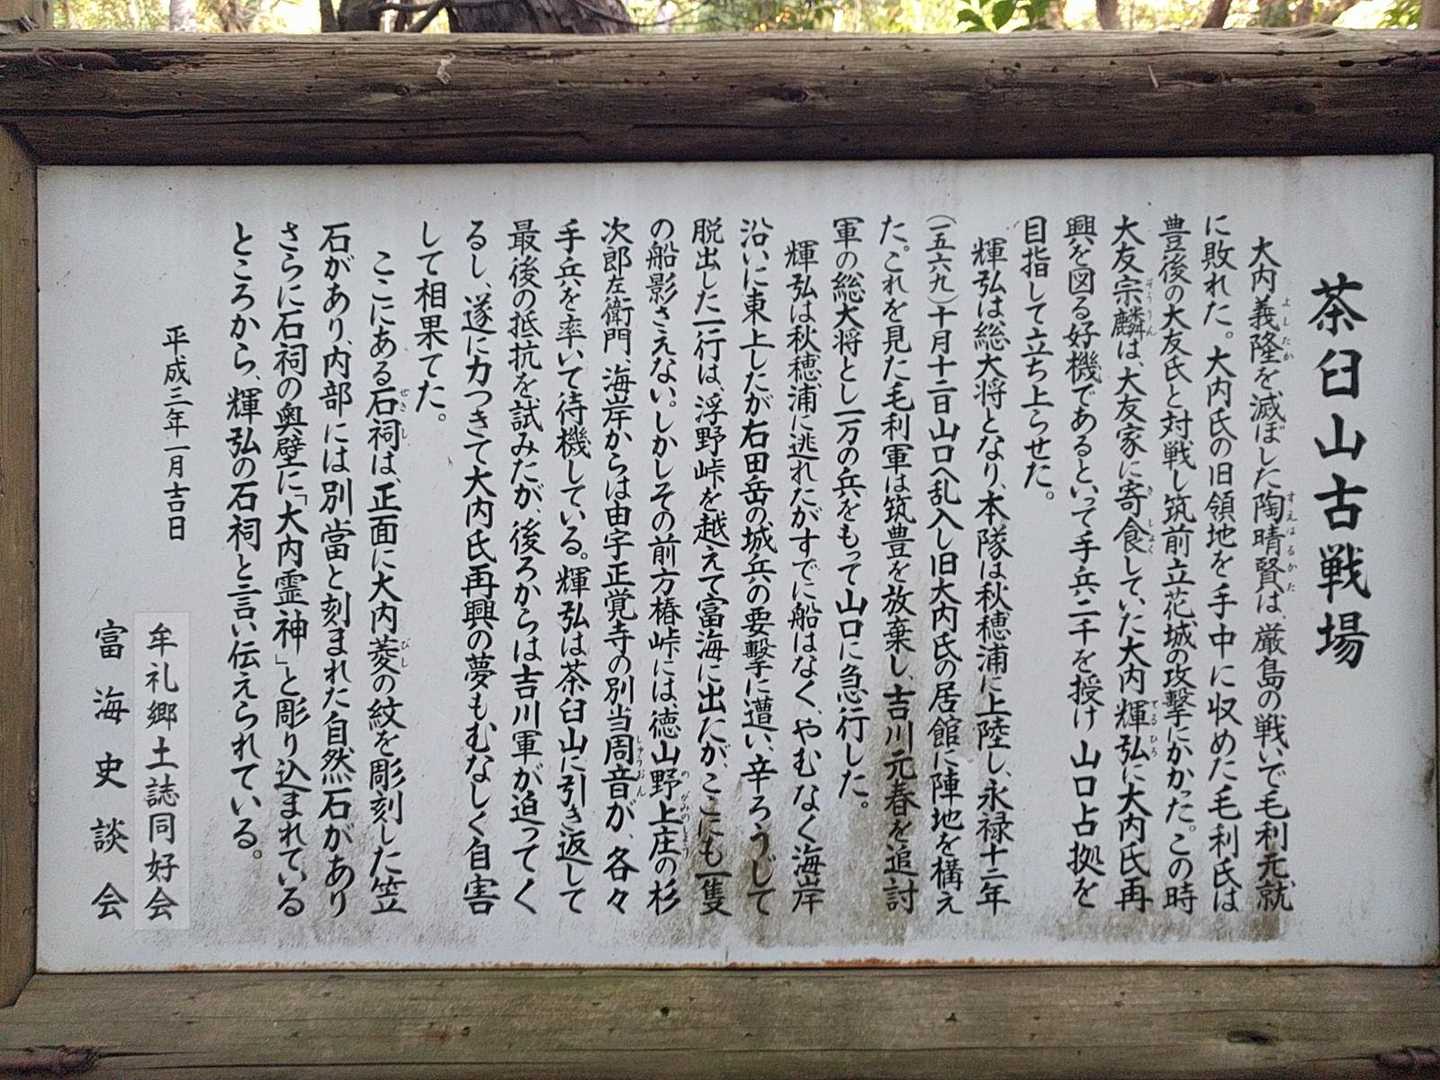 茶臼山古戦場
大内義隆を滅ぼした陶晴賢は、厳島の戦いで毛利元就
に敗れた。大内氏の旧領地を手中に収めた毛利氏は
豊後の大友氏と対戦し筑前立花城の攻撃にかかった。この時
大友宗麟は、大友家に寄食していた大内輝弘に大内氏再
興を図る好機であるといって手兵二千を授け山口占拠を
目指して立ち上らせた。
輝弘は総大将となり、本隊は秋穂浦に上陸し、永禄十二年
(一五六九)十月十二日山口へ乱入し旧大内氏の居館に陣地を構え
た。これを見た毛利軍は筑豊を放棄し、吉川元春を追討
軍の総大将とし一万の兵をもって山口に急行した。
輝弘は秋穂浦に逃れたがすでに船はなく、やむなく海岸
沿いに東上したが右田岳の城兵の要撃に遭い、辛ろうじて
脱出した一行は、浮野峠を越えて富海に出たが、ここにも一隻
の船影さえない。しかしその前方椿峠には、徳山野上庄の杉
次郎左衛門、海岸からは由宇正覚寺の別当周音が、各々
手兵を率いて待機している。輝弘は茶臼山に引き返して
最後の抵抗を試みたが、後ろからは吉川軍が迫ってく
るし、遂に力つきて大内氏再興の夢もむなしく自害
して相果てた。
ここにある石祠は、正面に大内菱の紋を彫刻した笠
石があり、内部には別當と刻まれた自然石があり
さらに石祠の奥壁に「大内霊神」と彫り込まれている
ところから、輝弘の石祠と言い伝えられている。
平成三年一月吉日
牟礼郷土誌同好会
富海史談会